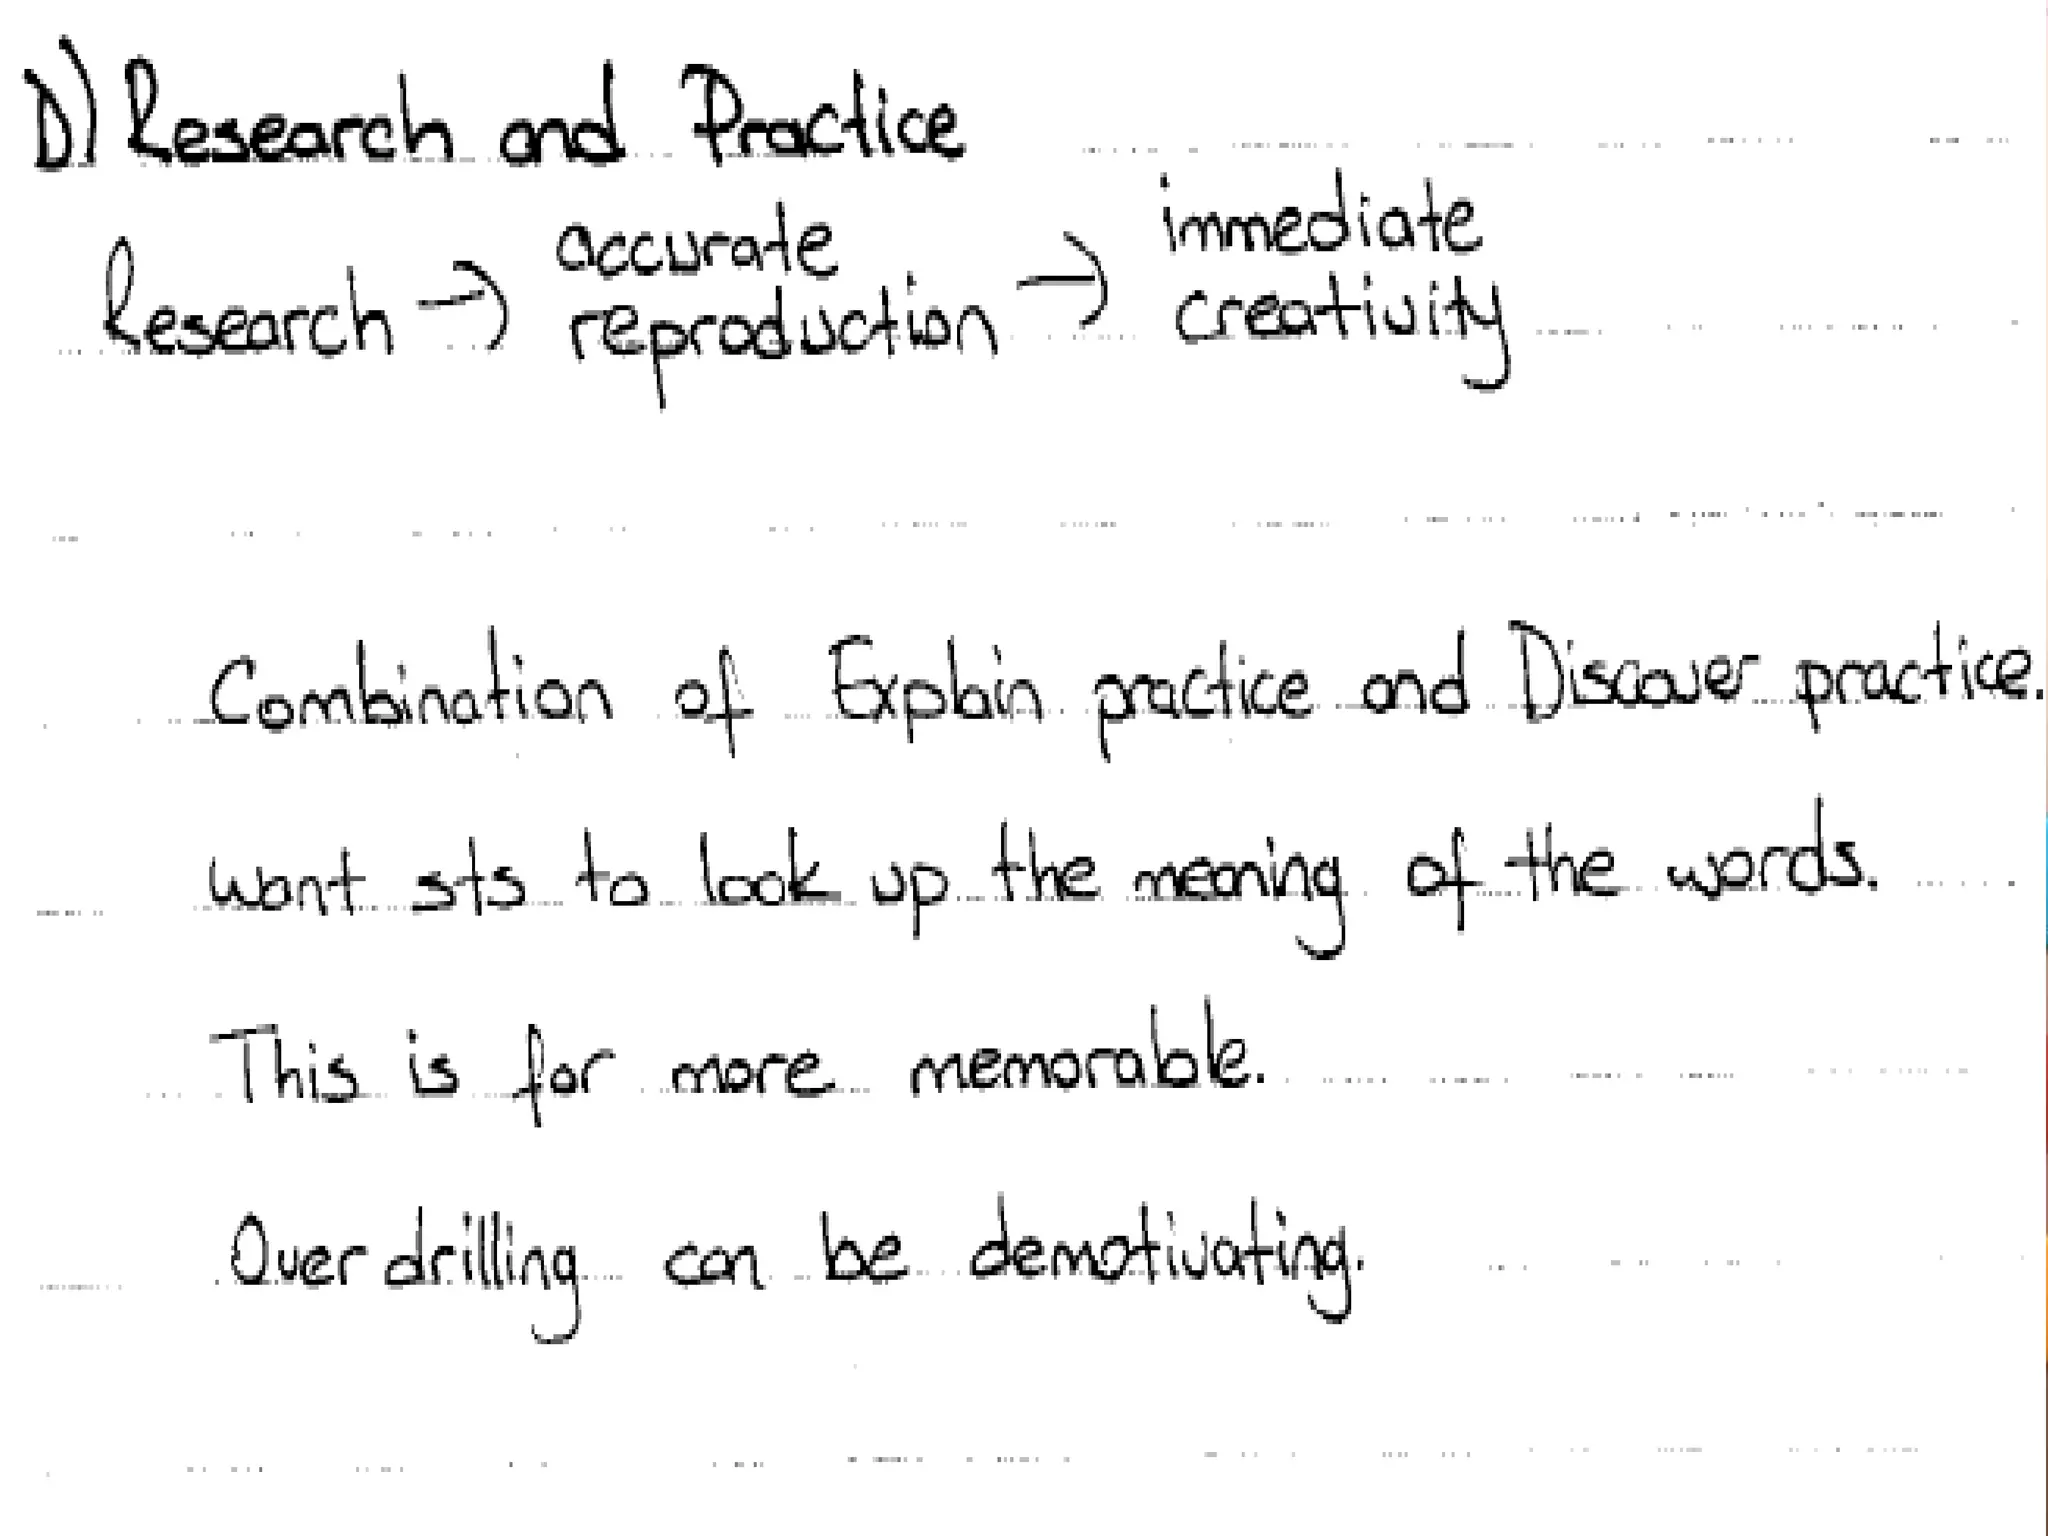 D) Research and Practice
Research → accurate reproduction → immediate creativity
Combination of Explain practice and Discover practice.
Want sts to look up the meaning of the words.
This is for more memorable.
Over drilling can be demotivating.